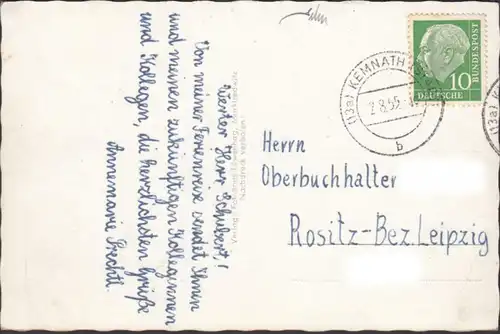 Werter Herr Schubert!
Von meiner Ferienreise sendet Ihnen
und meinen zukünftigen Kolleginnen
und Kollegen, die herzlichsten Grüße
Annemarie
Nachdruck verboten!
10
DEUTSCHE
BUNDESPOST
(13a) KEMNATH
2.8.55
b
(13a)
Herrn
Oberbuchhalter
Rositz-Bez.Leipzig